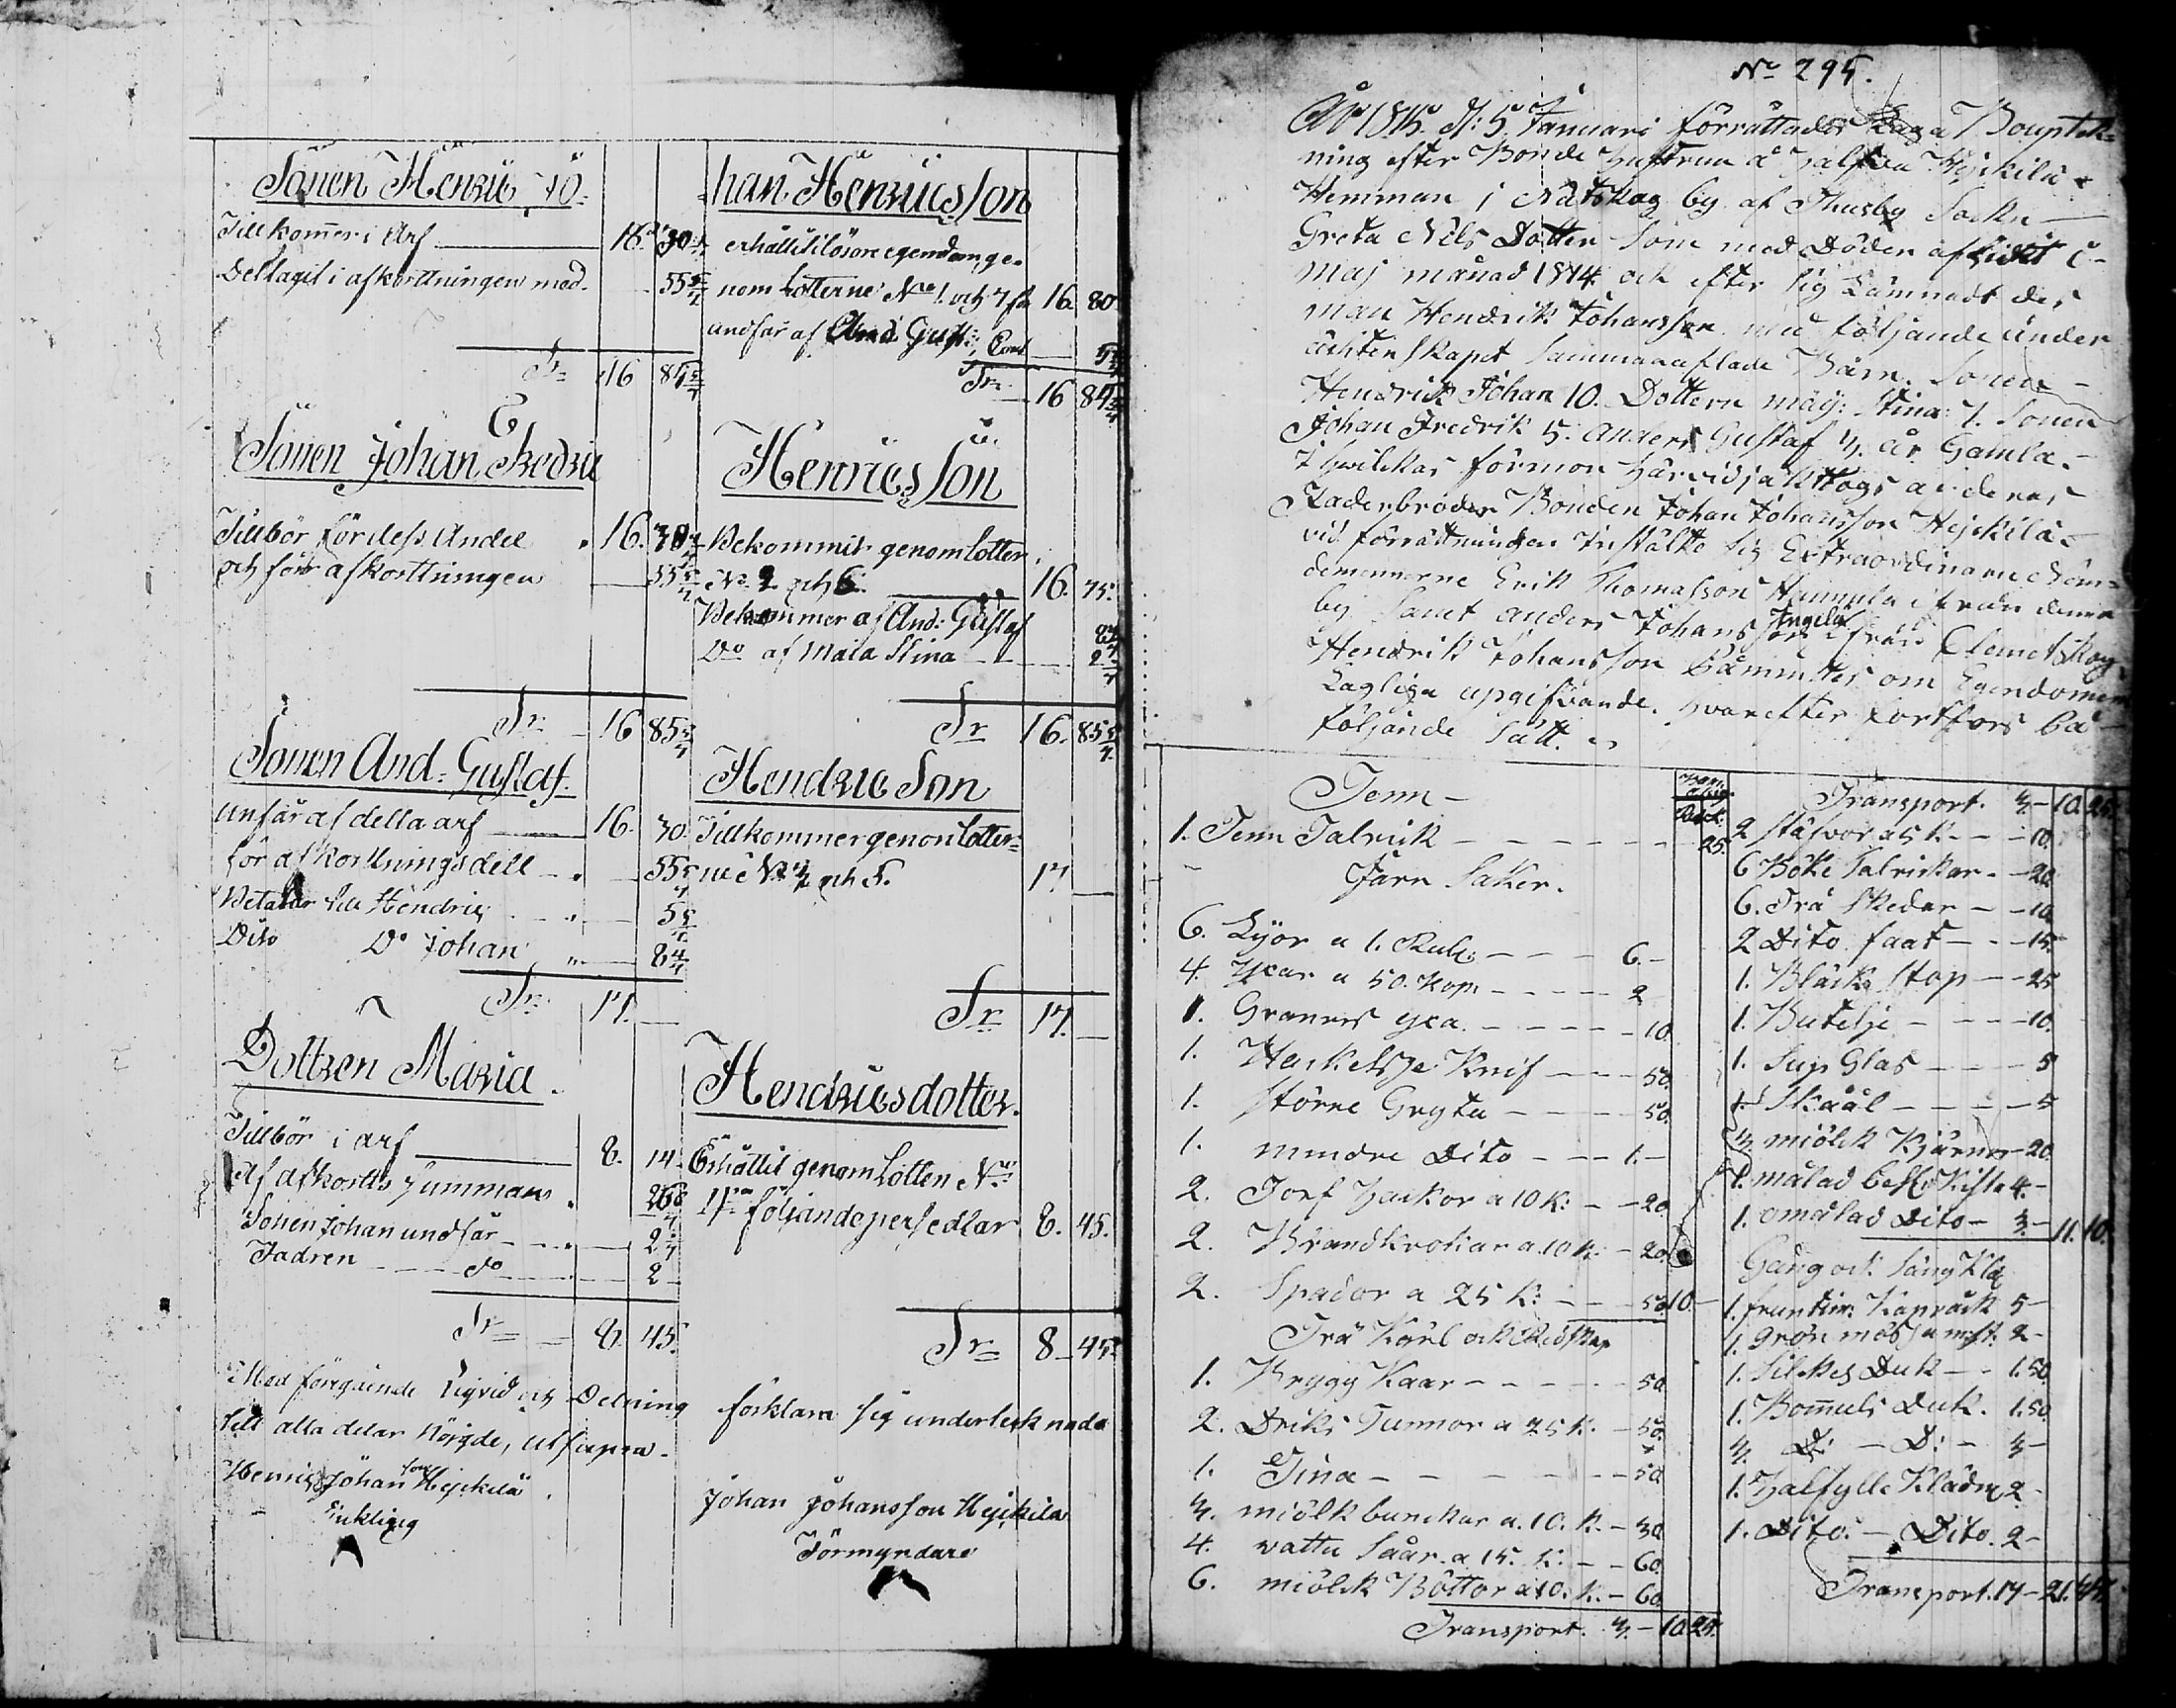 Sonen Henric Jo=
Tillkom̅er i Arf 16. 30
Deltagit i afkorttningen med 55 5/7
Sr 16 85 5/7
Sonen Johan Fredric
Tillbör för dess Andel 16. 30
och för afkorttningen 55 5/7
Sr 16 85 5/7
Sonen And: Gustaf.
Unfår af detta arf 16. 30
för afkorttnings dell 55 5/7
Betalar till Hendric 5 5/7
Dito Do Johan 8 4/7
Sr 17.
Dottren Maria.
Tillbör i arf 8. 14.
Af afkortts Summans
Sonen Johan undfår 2 2/7
Fadren do 2
Sr 8. 45.
Med föregående Ligvid och Delning
till alla delar Nöigde, ut supra.
Henric Johansson Hejckilä
Enkling
han Henricsson
erhållit i lösöre egendom ge=
nom Lotterne No 1. och 7 16. 80
undfår af And: Gust:
Sr 16 85 5/7
Henricsson
Bekommit genom Lotter
No 2 och 6. 16. 75.
Bekommer af And: Gustaf 8 4/7
Do af Maia Stina 2 2/7
Sr 16. 85 5/7
Hendricson
Tillkommer genom Lotter=
ne No 4 och 5. 17
Sr 17.
Hendricsdotter.
Erhållit genom Lotten No
3 följande persedlar 8. 45.
Sr 8 45.
förklara sig undertecknade
Johan Johansson Hejckilä
Förmyndare
No 295.
År 1815. d: 5. Januari förrättades Laga Bouptek=
ning efter Bonde Hustrun å halfva Hejckilä
Hemman i Nätskog by af Thusby Sockn
Greta Nils Dotter som med Döden aflidit i
Maj månad 1814 och efter sig Lämnadt des
man Hendrik Johansson med följande under
ächtenskapet sammanaflade Barn. Sonen
Hendrik Johan 10. Dottern Maj: Stina 7. Sonen
Johan Fredrik 5. Anders Gustaf 3. år Gamla.
Hvilckas förmon härvid jakttogs af deras
Faderbroder Bonden Johan Johansson Hejckilä.
vid förrättningen instälte sig Extraordinarie Näm=
demännerne Erik Thomasson Hannula ifrån denna
by samt Anders Johansson Ingila ifrån Clemetskog
Hendrik Johansson Påmintes om Egendomens
Lagliga upgifvande. hvarefter fortfors på
följande Sätt.
Tenn
1. Tenn Talrick 25.
Järn Saker.
6. Lijor a 1. Rub: 6.
4. Yxar a 50. Kop: 2
1. Granris yxa. 10.
1. Hackelsse Knif 50.
1. Större Gryta 50.
1. mindre Dito 1.
2. Torf Hackor a 10 K: 20.
2. Brandkrokar a. 10 K: 20.
2. Spador a 25 K: 50. 10
Trä Kärl och Redskap
1. Brygg Kaar 50
2. Dricks Tunnor a 25 K. 50.
1. Tina 50
3. miölk bunckar a. 10. K. 30
4. vattu Såar. a 15. K: 60.
6. miölck Böttor a 10. K. 60.
Transport. 3. 10. 25.
Transport. 3 10. 25.
2 Stäfvor a 5 K. 10.
6 Böke Talrickar. 20.
6. Trä Skedar 10.
2 Dito faat 15.
1. Bläck Stop 25
1. Butelje 10.
1. Sup Glas 5
1. Skåål 5
3 miölck Kjärnor 20.
1. målad besl: Kista 4.
1. omålad Dito 3. 11. 10.
Gång och Säng Klä
1. fruntim: Kapråck 5
1. Grön mössa 2
1. Silkes Duk 1.50.
1. Bom̅uls Duk. 1.50.
3. D: D: 3
1. Halfylle Klädni 2
1. Dito. Dito. 2
Transport. 17 21.